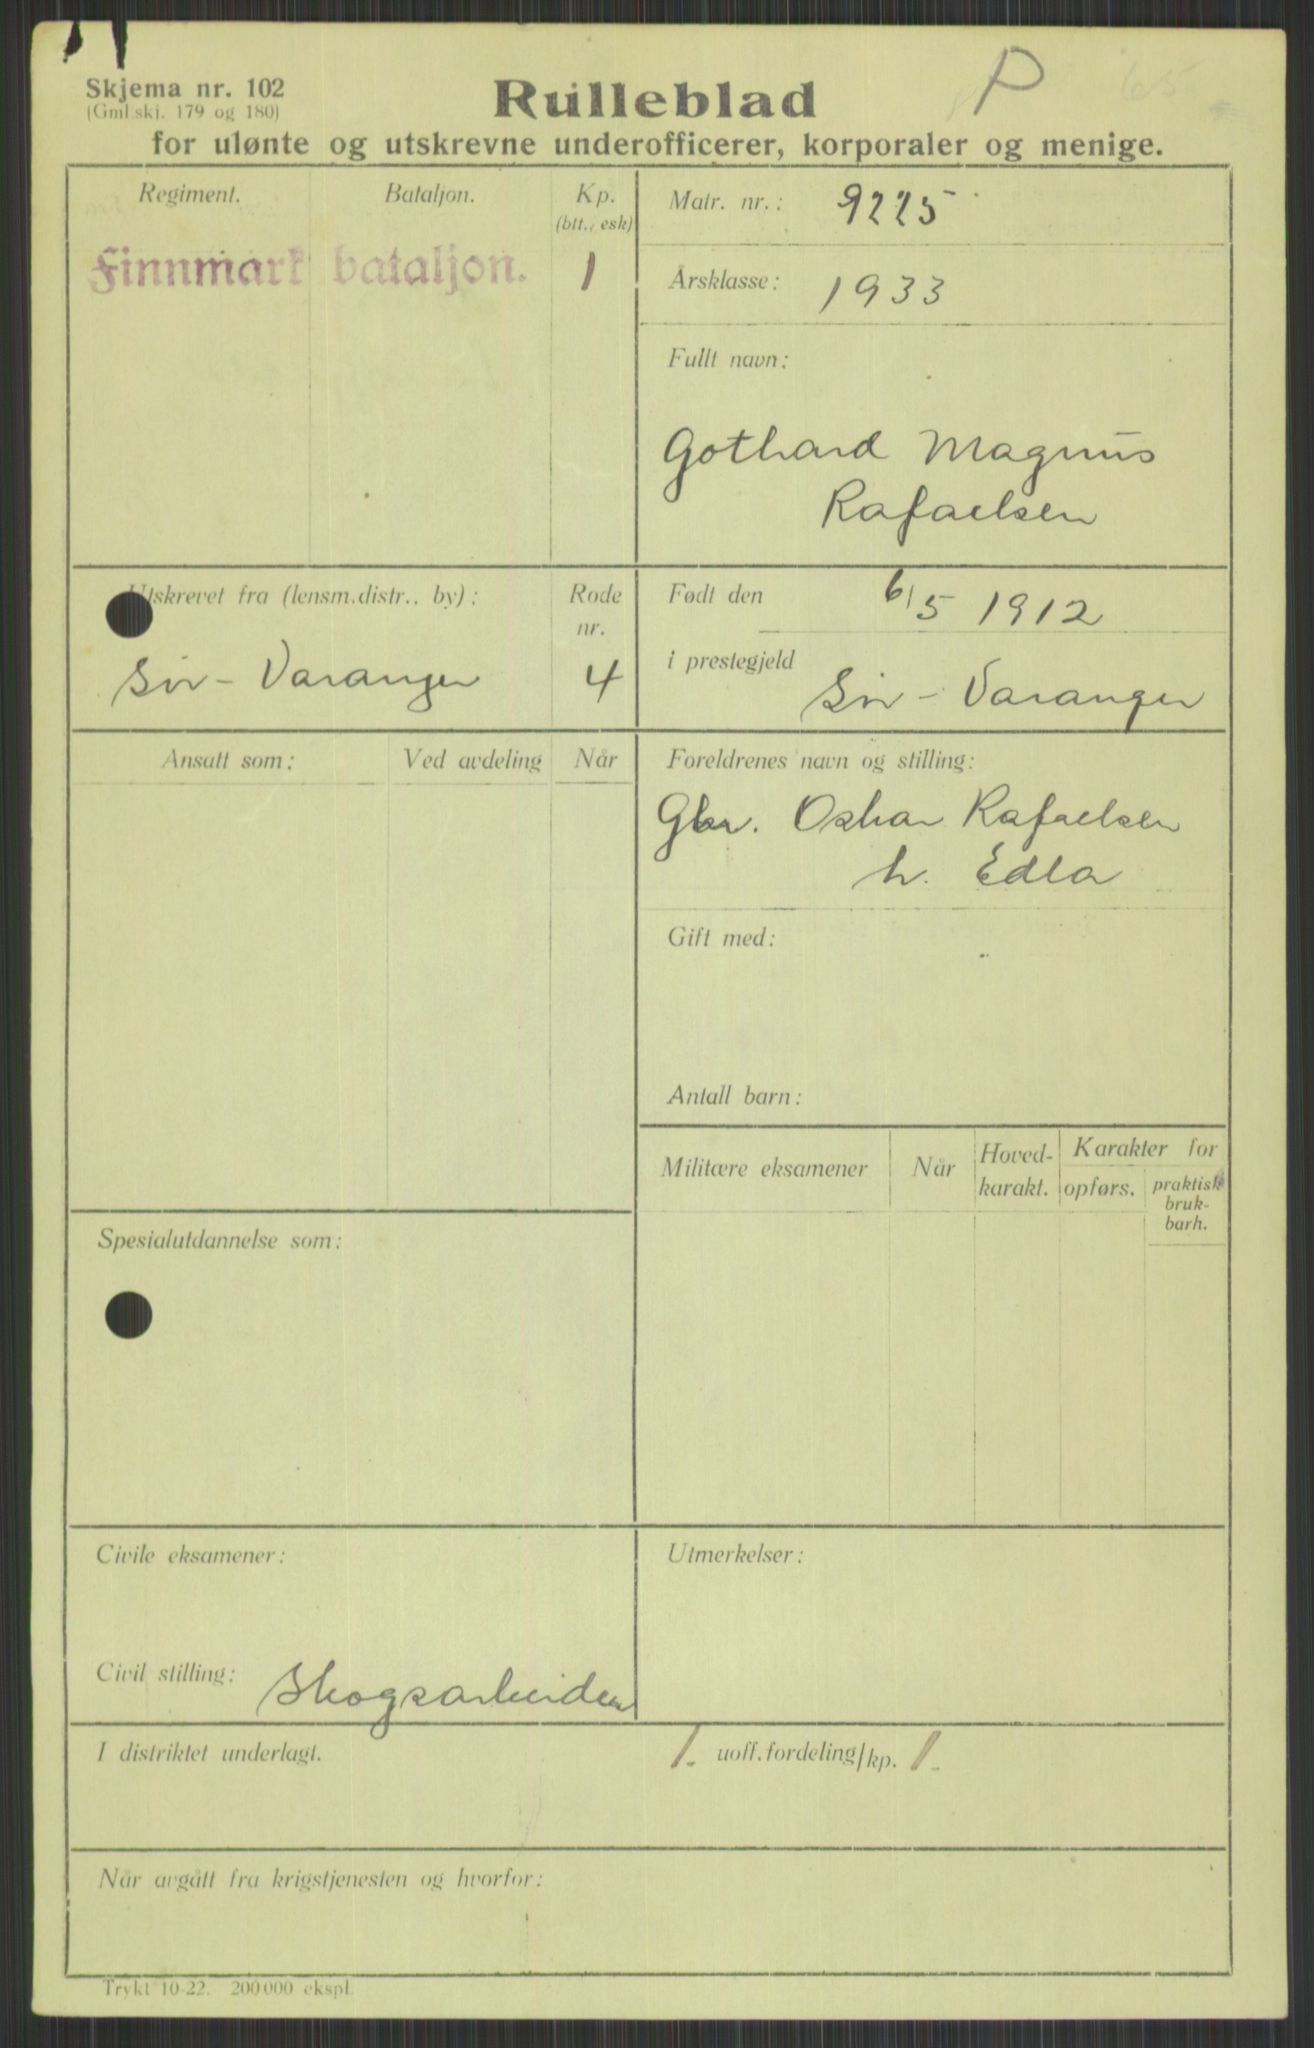 Skjema nr. 102
(Gml.skj. 179 og 180)
Rulleblad
P
65
for ulønte og utskrevne underofficerer, korporaler og menige.
Regiment.
Bataljon.
Kp.
(btt., esk)
Finnmark bataljon.
1
Matr. nr.: 9225
Årsklasse: 1933
Fullt navn:
Gothard Magnus
Rafaelsen
Utskrevet fra (lensm.distr., by):
Rode
nr.
Sør-Varanger
4
Født den 6/5 1912
i prestegjeld Sør-Varanger
Ansatt som:
Ved avdeling
Når
Foreldrenes navn og stilling:
Gbr. Oskar Rafaelsen
h. Edla
Gift med:
Antall barn:
Militære eksamener
Når
Hoved-
karakt.
Karakter for
opførs.
praktisk
bruk-
barh.
Spesialutdannelse som:
Civile eksamener:
Civil stilling: Skogsarbeider
Utmerkelser:
I distriktet underlagt.
1. uoff.fordeling/kp. 1.
Når avgått fra krigstjenesten og hvorfor:
Trykt 10-22. 200 000 ekspl.